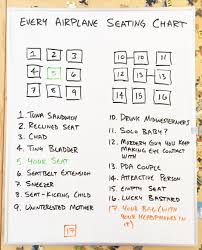 EVERY AIRPLANE SEATING CHART
1 2 3 10 11 12
4 5 6 13 14
7 8 9 15 16
1. TUNA SANDWICH
2. RECLINED SEAT
3. CHAD
4. TINY BLADDER
5. YOUR SEAT
6. SEATBELT EXTENSION
7. SNEEZER
8. SEAT-KICKING CHILD
9. UNINTERESTED MOTHER
10. DRUNK MIDWESTERNERS
11. SOLO BABY?
12. MURDERY GUY YOU KEEP
MAKING EYE CONTACT
WITH
13. PDA COUPLE
14. ATTRACTIVE PERSON
15. EMPTY SEAT
16. LUCKY BASTARD
17. YOUR BAG (WITH
YOUR HEADPHONES IN
IT)
17